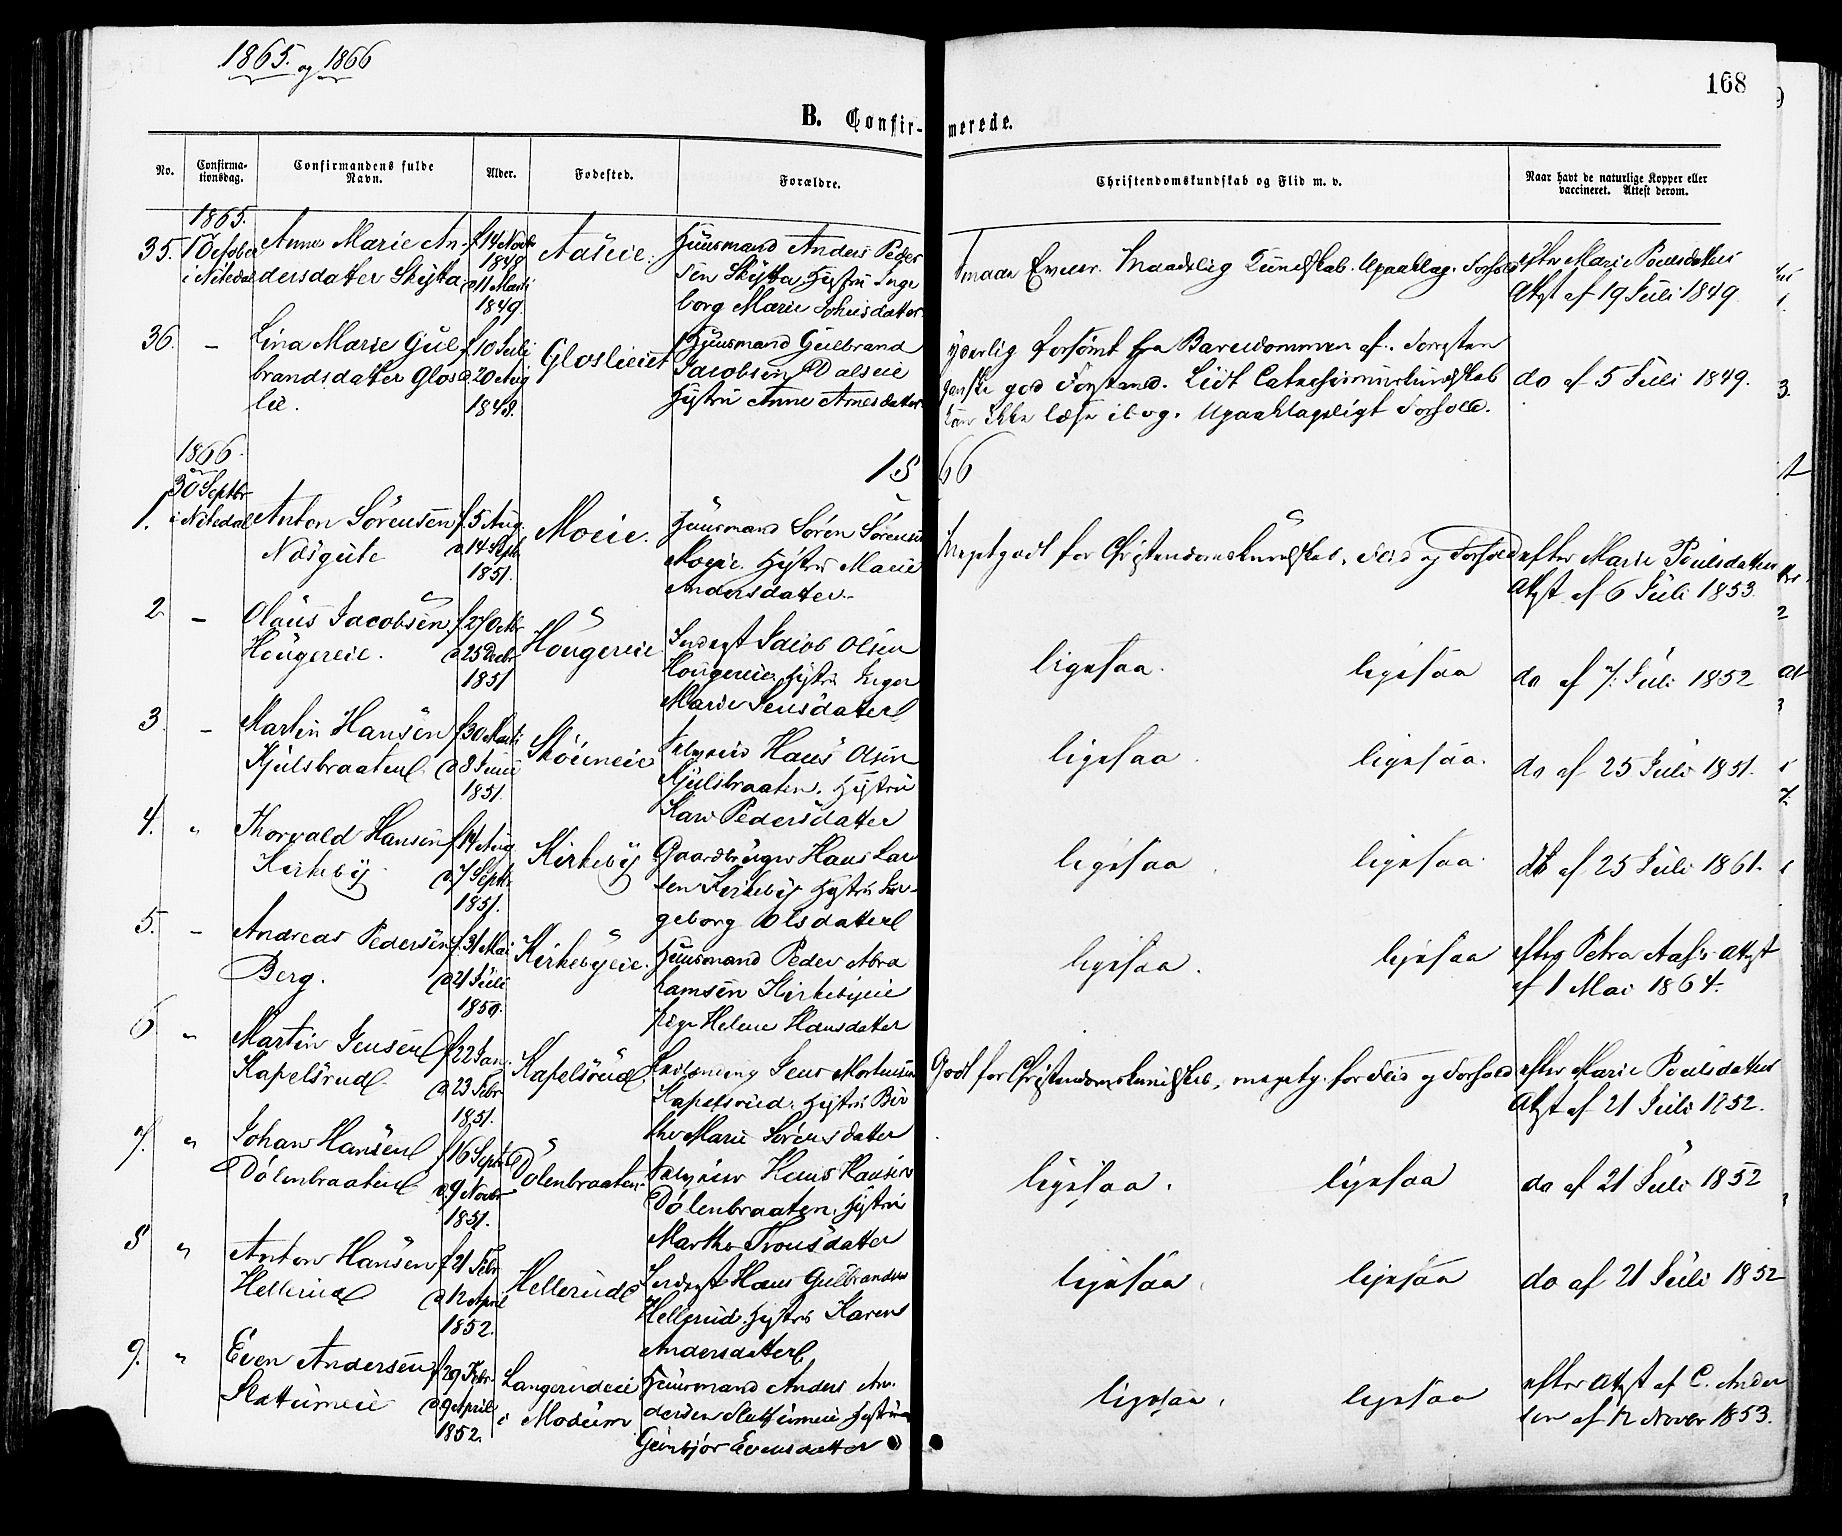 1865. og 1866
168
B. Confir-
merede.
No.
Confirma-
tionsdag.
Confirmandens fulde
Navn.
Alder.
Fødested.
Forældre.
Christendomskundskab og Flid m. v.
Naar havt de naturlige Kopper eller
vaccineret. Attest derom.
1865.
35. 1 October
i Nitedal
Anne Marie An-
dersdatter Skytta
f 14 Novbr
1848
d 11 Marti
1849
Aaseie.
Huusmand Anders Peder
sen Skytta, Hustru Inge
borg Marie Johnsdatter
smaae Evner. Maadelig Kundskab. Upaaklag. Forhold
efter Marie Poulsdatters
Attst af 19 Juli 1849
36. –
Lina Marie Gul
brandsdatter Glos
lie.
f 10 Juli
d 20 Aug
1848.
Gloslieiet
Huusmand Gulbrand
Jacobsen Dalseie
Hustru Anne Arnesdatter
yderlig forsømt fra Barndommen af. Forresten
ganske god Forstand. Lidt Catechismuskundskab
kan ikke læse i bog. Upaaklageligt Forhold.
do af 5 Juli 1849.
1866.
1866
1. 30 Septbr
i Nitedal
Anton Sørensen
Næsgute
f. 5 Aug.
d 14 Sept.
1851.
Moeie.
Huusmand Søren Sørensen
Moeie. Hustru Marie
Andersdatter.
Megetgodt for Christendomskundskab, Flid og Forhold
efter Marie Poulsdatters
Attst af 6 Juli 1853.
2 –
Olaus Jacobsen
Hougereie.
f 27 Octbr
d 25 Decbr
1851
Hougereie
Inderst Jacob Olsen
Hougereie, Hustru Inger
Marie Jensdatter
ligesaa. ligesaa
do af 7. Juli 1852
3 –
Martin Hansen
Kjulsbraaten
f 30 Marti
d 8 Juni
1851.
Skøieneie
Selveier Hans Olsen
Kjulsbraaten. Hustru
Kari Pedersdatter
ligesaa. ligesaa.
do af 25 Juli 1851.
4. "
Thorvald Hansen
Kirkeby
f 14 Aug
d 7 Septbr
1851.
Kirkeby
Gaardbruger Hans Lar
sen Kirkeby Hustru In-
geborg Olsdatter
ligesaa ligesaa.
do af 25 Juli 1861.
5. –
Andreas Pedersen
Berg.
f. 31 Mai
d 21 Juli
1850.
Kirkebyeie.
Huusmand Peder Abra
hamsen Kirkebyeie
Pige Helene Hansdatter
ligesaa. ligesaa
efter Petra Aas's Attst
af 1 Mai 1864.
6 "
Martin Jensen
Kapelsrud.
f 22 Jan.
d 23 Febr
1851.
Kapelsrud
Jens Mortensen
Kapelsrud. Hustru Bir
the Marie Sørensdatter
Godt for Christendomskundskab, megetg. for Flid og Forhold
efter Marie Poulsdatters
Attst af 21 Juli 1752.
7. "
Johan Hansen
Dølenbraaten
f 16 Septbr
d. 9 Novbr
1851.
Dølenbraaten
Selveier Hans Hansen
Dølenbraaten, Hustru
Marthe Tronsdatter
ligesaa. ligesaa
do af 21 Juli 1852
8 "
Anton Hansen
Hellerud
f 21 Febr
d 12 April
1852.
Hellerud
Inderst Hans Gulbrandsen
Hellerud. Hustru Karen
Andersdatter
ligesaa. ligesaa
do af 21 Juli 1852
9. "
Even Andersen
Slattumeie
f 29 Febr.
d 9 April
1852.
Langerudeie
i Modum
Huusmand Anders An-
dersen Slattumeie, Hustru
Gunbjør Evensdatter
ligesaa. ligesaa
efter Attst af C. Ander
sen af 12 Novbr 1853.